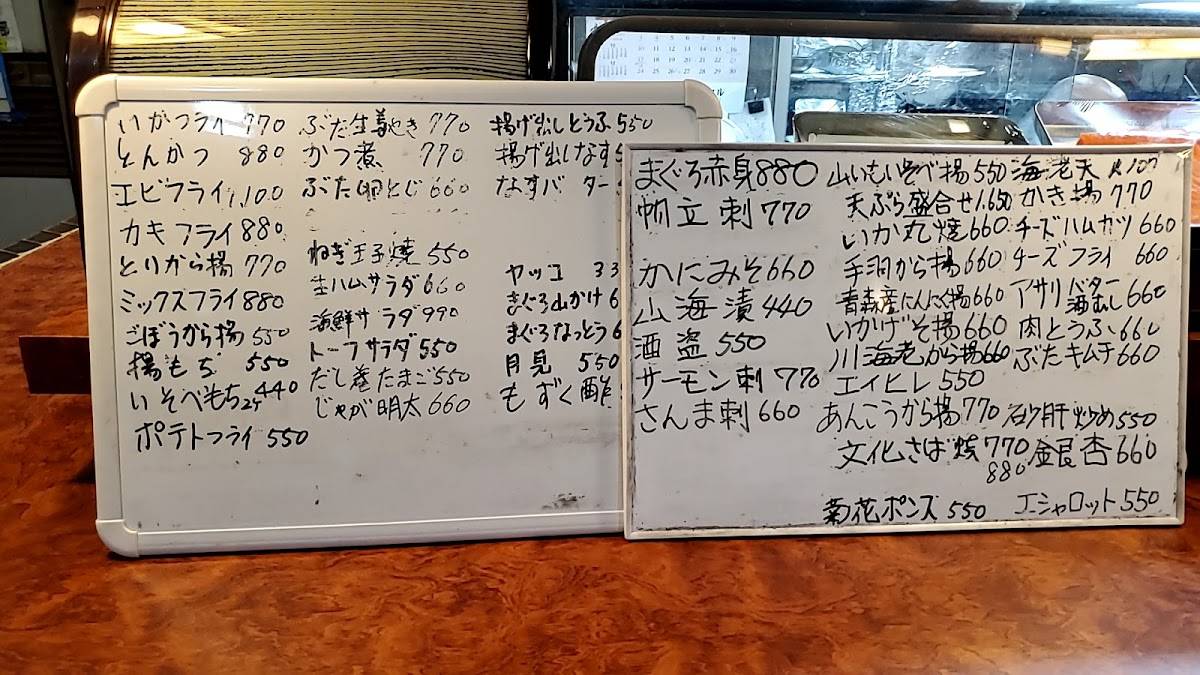 いかフライ 770
とんかつ 880
エビフライ 1,100
カキフライ 880
とりから揚 770
ミックスフライ 880
ごぼうから揚 550
揚もち 550
いそべもち 2ヶ 440
ポテトフライ 550
ぶた生姜やき 770
かつ煮 770
ぶた卵とじ 660
ねぎ玉子焼 550
生ハムサラダ 660
海鮮サラダ 990
トーフサラダ 550
だし巻たまご 550
じゃが明太 660
揚げ出しとうふ 550
揚げ出しなす
なすバター
ヤッコ 33
まぐろ山かけ 6
まぐろなっとう 6
月見 550
もずく酢
まぐろ赤身 880
帆立刺 770
かにみそ 660
山海漬 440
酒盗 550
サーモン刺 770
さんま刺 660
山いもいそべ揚 550
天ぷら盛合せ 1.650
いか丸焼 660
手羽から揚 660
青森産にんにく揚 660
いかげそ揚 660
川海老から揚 660
エイヒレ 550
あんこうから揚 770
文化さば焼 770
880
菊花ポンズ 550
海老天
かき揚 770
チーズハムカツ 660
チーズフライ 660
アサリバター酒むし 660
肉とうふ 660
ぶたキムチ 660
砂肝炒め 550
銀杏 660
エシャロット 550